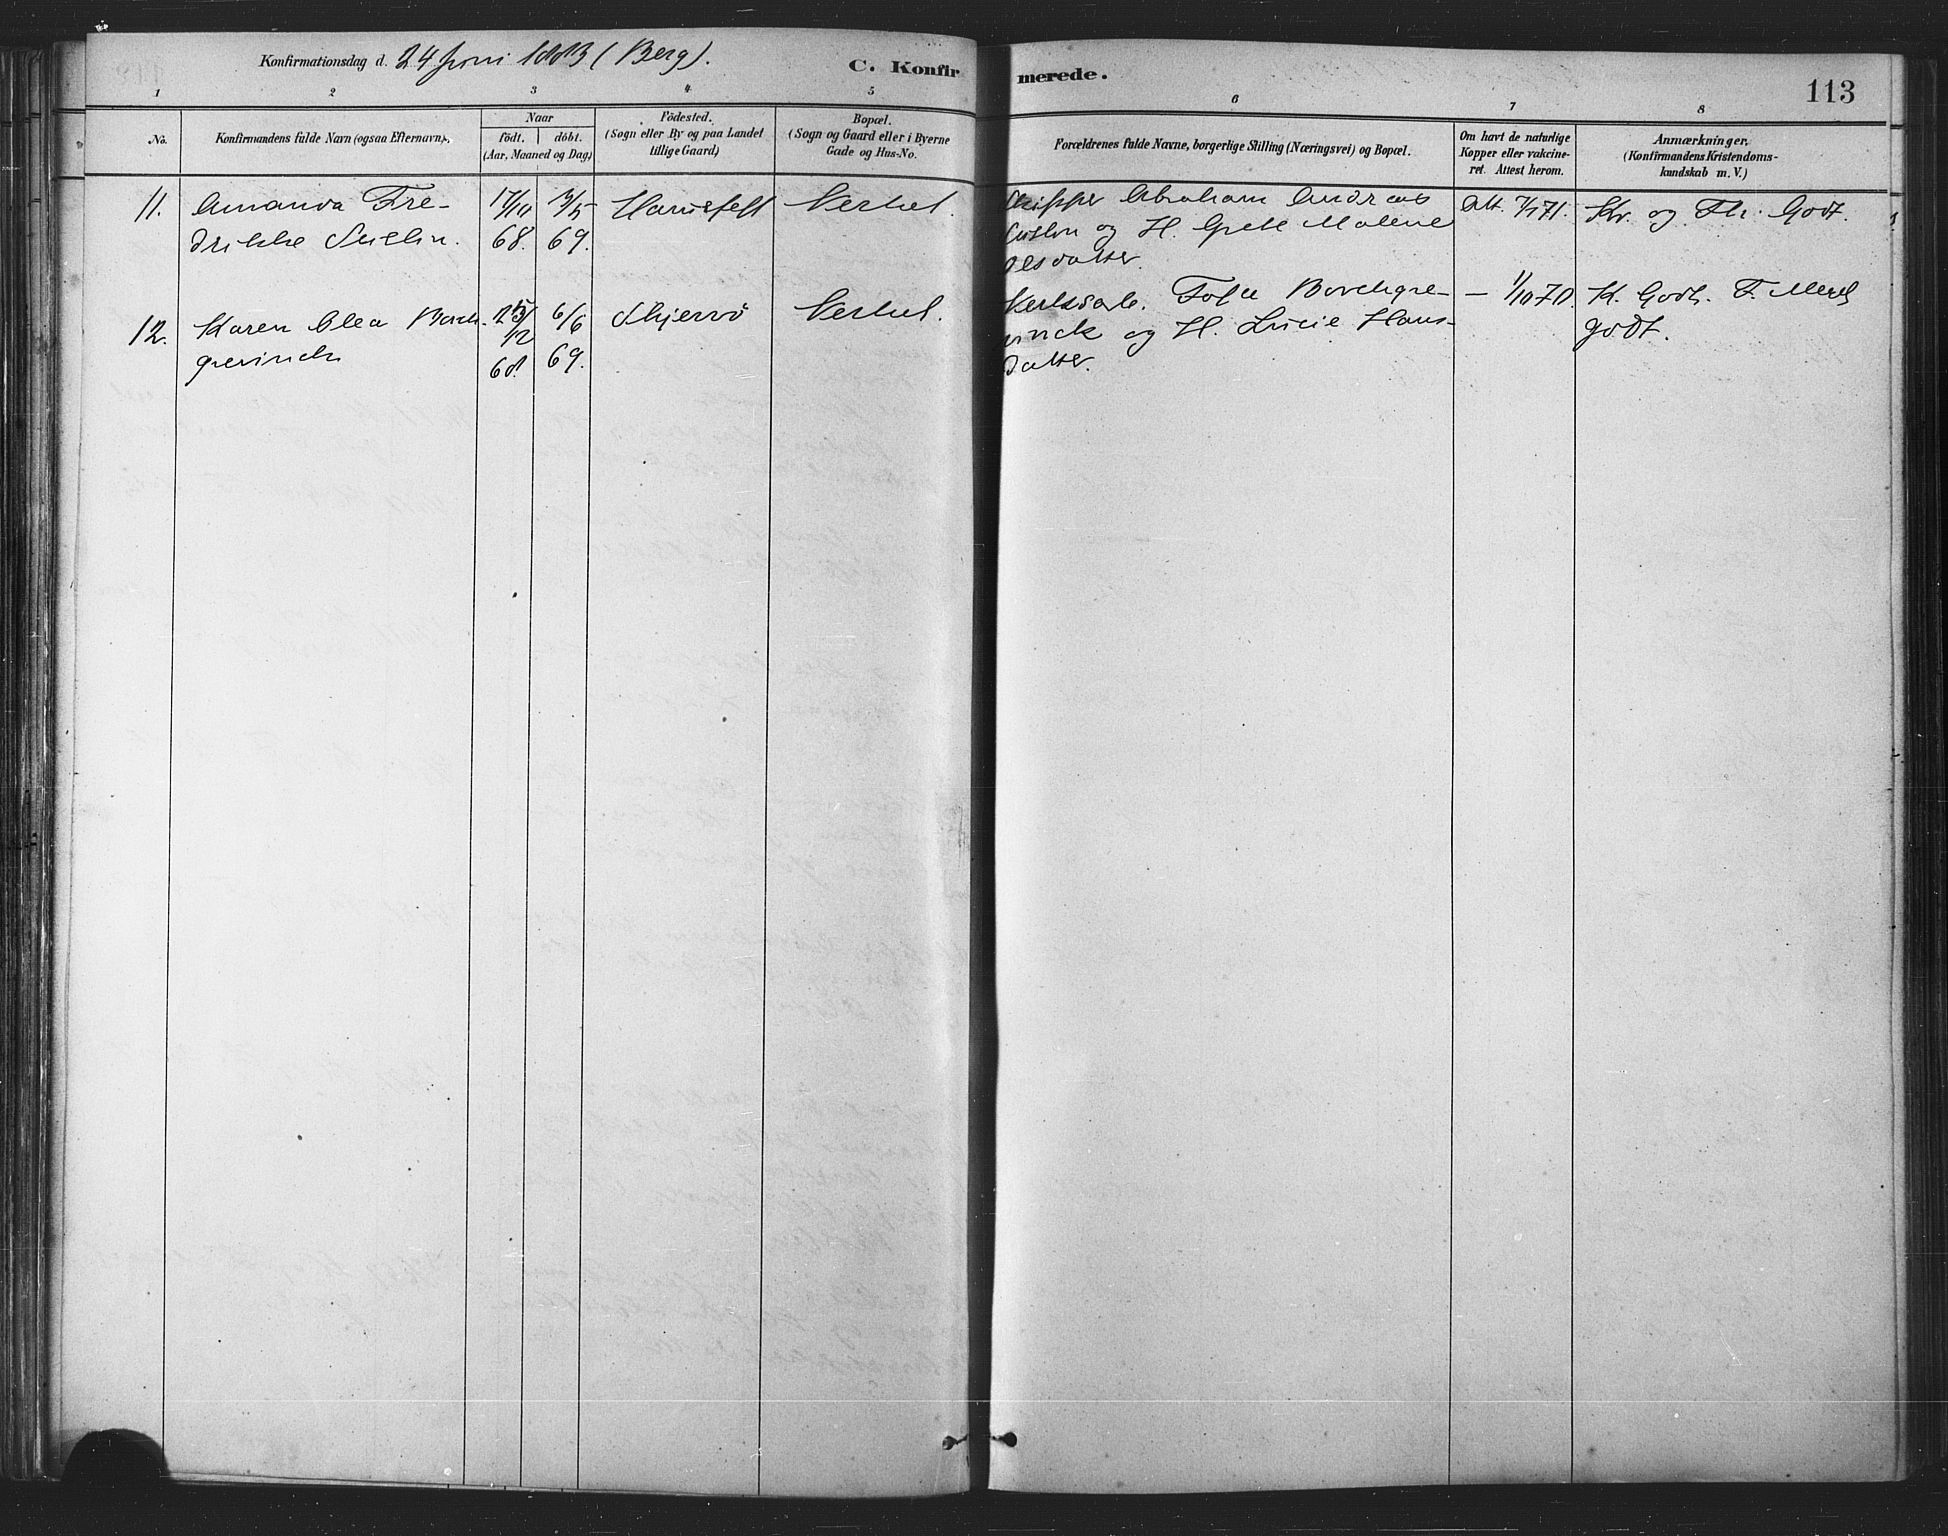 Konfirmationsdag d. 24 Juni 1883 (Berg).
C. Konfirmerede.
113
1 2 3 4 5 6 7 8
No.
Konfirmandens fulde Navn (ogsaa Efternavn).
Naar
födt. döbt.
(Aar, Maaned og Dag)
Födested.
(Sogn eller By og paa Landet
tillige Gaard)
Bopæl.
(Sogn og Gaard eller i Byerne
Gade og Hus-No.
Forældrenes fulde Navne, borgerlige Stilling (Næringsvei) og Bopæl.
Om havt de naturlige
Kopper eller vakcine-
ret. Attest herom.
Anmærkninger.
(Konfirmandens Kristendoms-
kundskab m. V.)
11. Amanda Fre-
drikke
17/10
68.
69.
Skipper Abraham Andreas
og H. Grete Malene
Att. 7/1 71.
Kr. og Fl. Godt.
12. Karen Olea Borch-
grevinck
12
68.
6/6
69.
Skjervö
Tofte Borchgre-
vinck og H. Lucie Hans-
datter.
— 1/10 70.
K. Godt. F. Meget
godt.